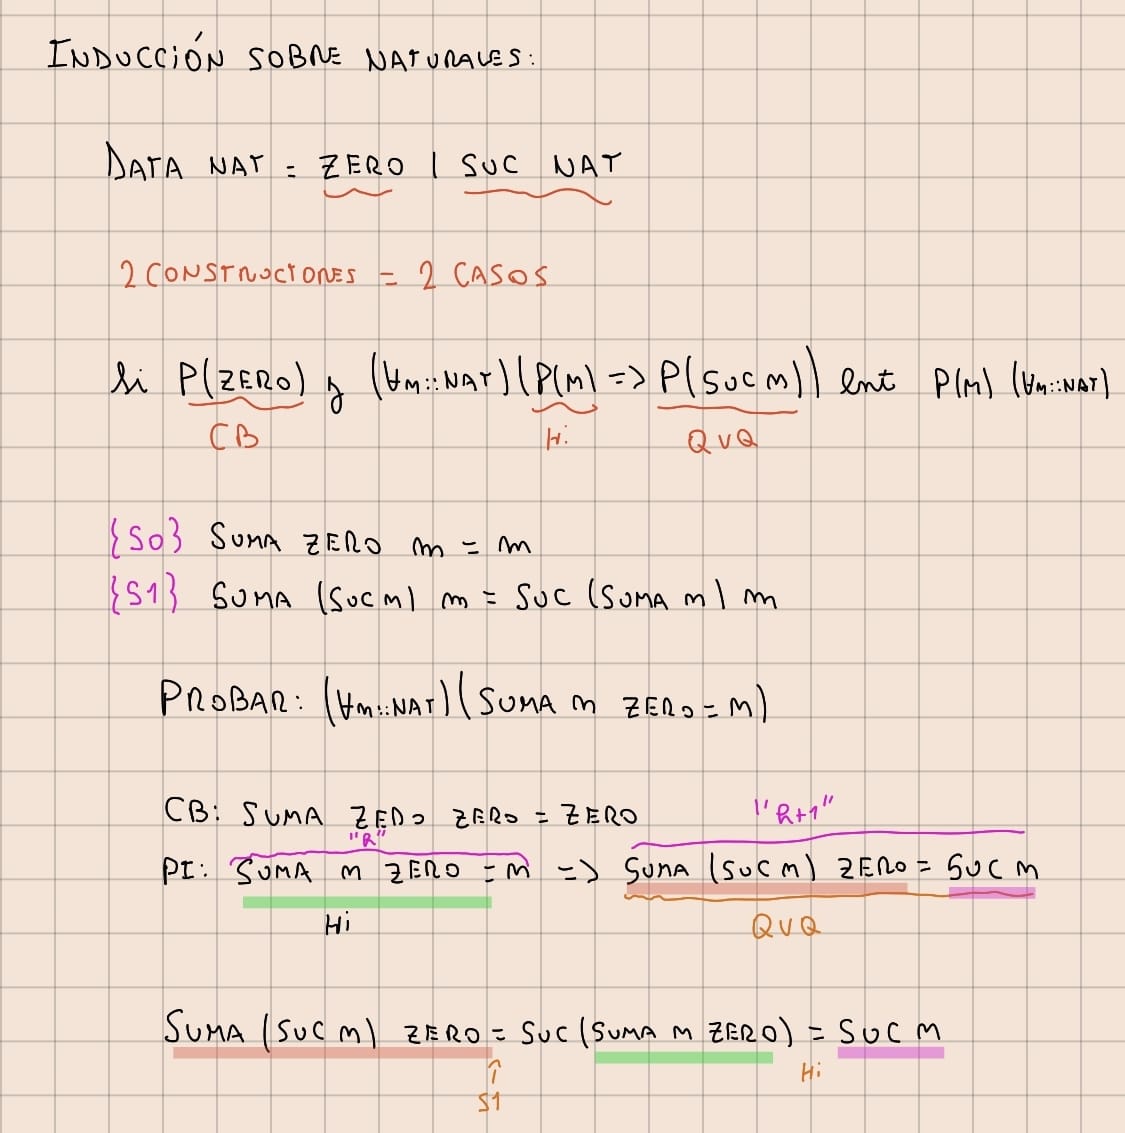 INDUCCIÓN SOBRE NATURALES:
DATA NAT = ZERO | SUC NAT
2 CONSTRUCTORES = 2 CASOS
Si P(ZERO) y (∀m::NAT)(P(m) => P(SUC m)) ent P(m) (∀m::NAT)
CB Hi QVQ
{S0} SUMA ZERO m = m
{S1} SUMA (SUC m) m = SUC (SUMA m) m
PROBAR: (∀m::NAT)(SUMA m ZERO = m)
CB: SUMA ZERO ZERO = ZERO
"k" "k+1"
PI: SUMA m ZERO = m => SUMA (SUC m) ZERO = SUC m
Hi QVQ
SUMA (SUC m) ZERO = SUC (SUMA m ZERO) = SUC m
↑ Hi
S1